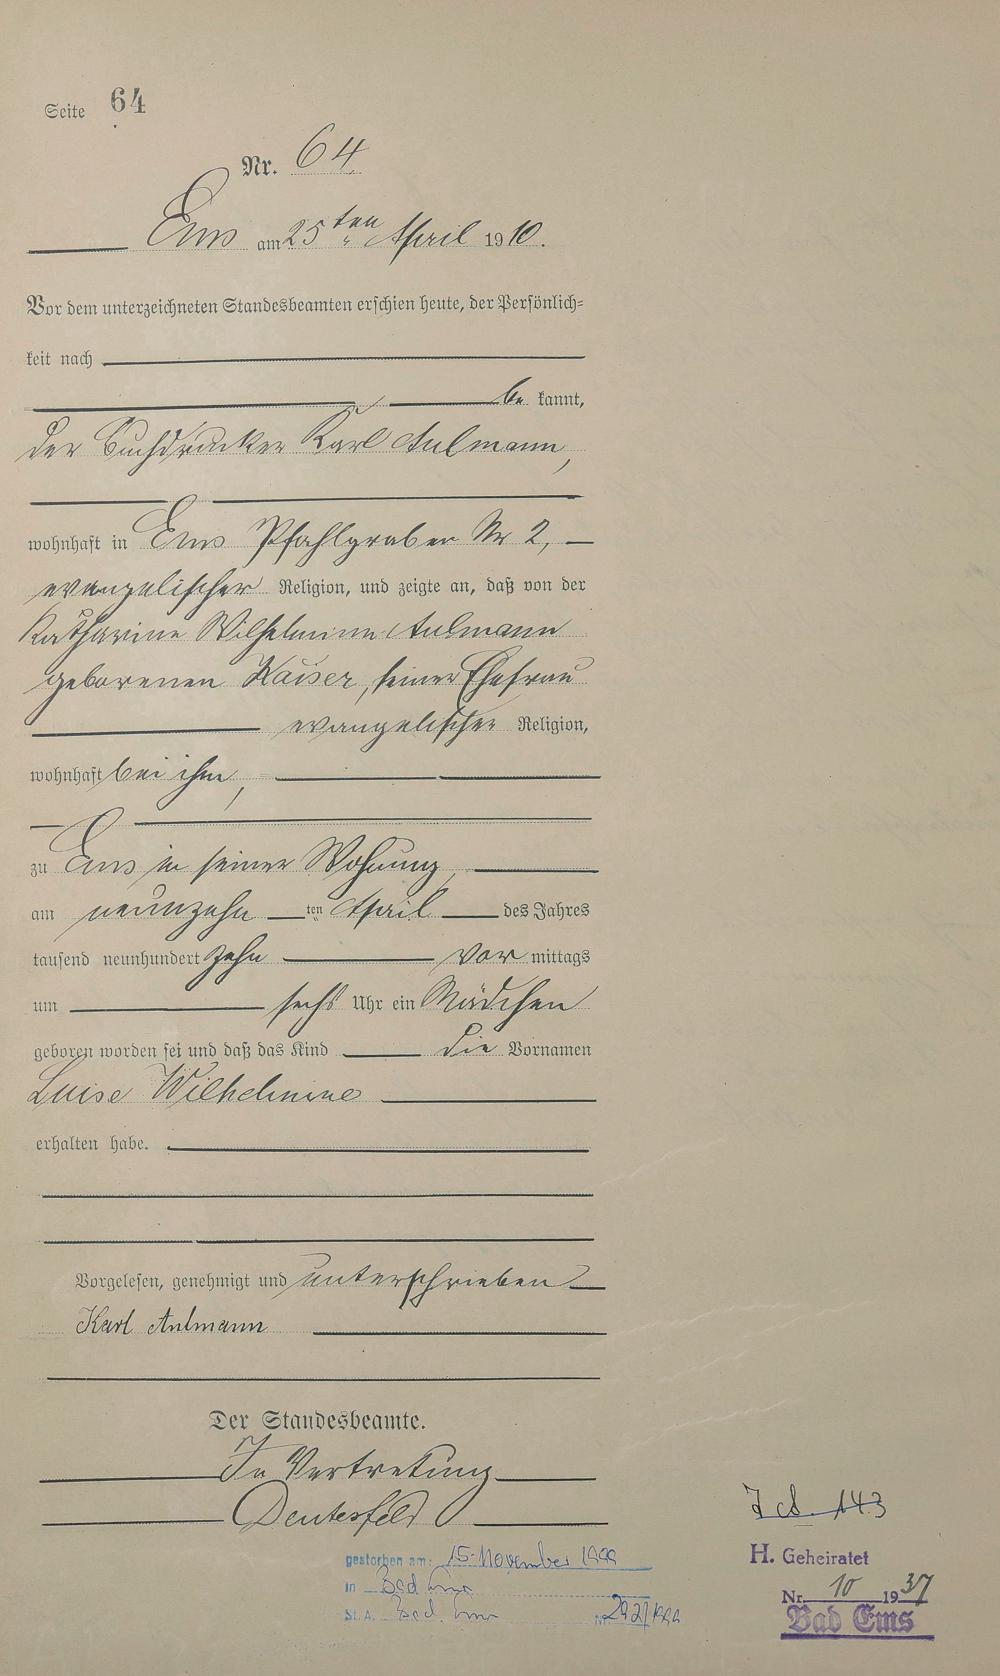 Seite 64
Nr. 64.
Ems am 25ten April 1910.
Vor dem unterzeichneten Standesbeamten erschien heute, der Persönlich=
keit nach
be kannt,
der Buchdrucker Karl Aulmann,
wohnhaft in Ems Pfahlgraben Nr 2,
evangelischer Religion, und zeigte an, daß von der
Katharine Wilhelmine Aulmann
geborenen Kaiser, seiner Ehefrau
evangelischer Religion,
wohnhaft bei ihm,
zu Ems in seiner Wohnung,
am neunzehn ten April des Jahres
tausend neunhundert zehn vor mittags
um sechs Uhr ein Mädchen
geboren worden sei und daß das Kind die Vornamen
Luise Wilhelmine
erhalten habe.
Vorgelesen, genehmigt und unterschrieben
Karl Aulmann
Der Standesbeamte.
In Vertretung
gestorben am: 15. November 1999
in Bad Ems
St. A. Bad Ems Nr.
143
H. Geheiratet
Nr. 10 1937
Bad Ems